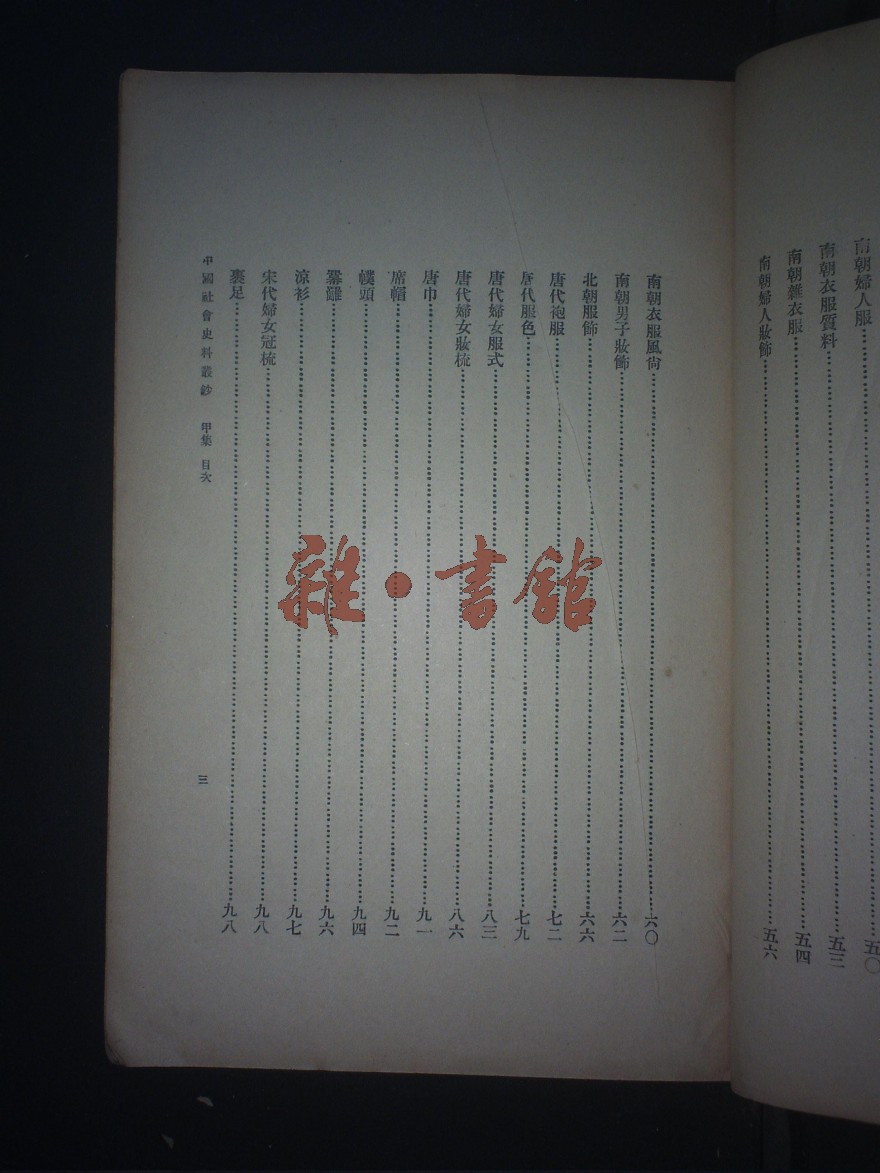 南朝婦人服……五〇
南朝衣服質料……五三
南朝雜衣服……五四
南朝婦人妝飾……五六
南朝衣服風尙……六〇
南朝男子妝飾……六二
北朝服飾……六六
唐代袍服……七二
唐代服色……七九
唐代婦女服式……八三
唐代婦女妝梳……八六
唐巾……九一
席帽……九二
幞頭……九四
羃䍦……九六
涼衫……九七
宋代婦女冠梳……九八
裹足……九八
中國社會史料叢鈔 甲集 目次 三
雜·書館